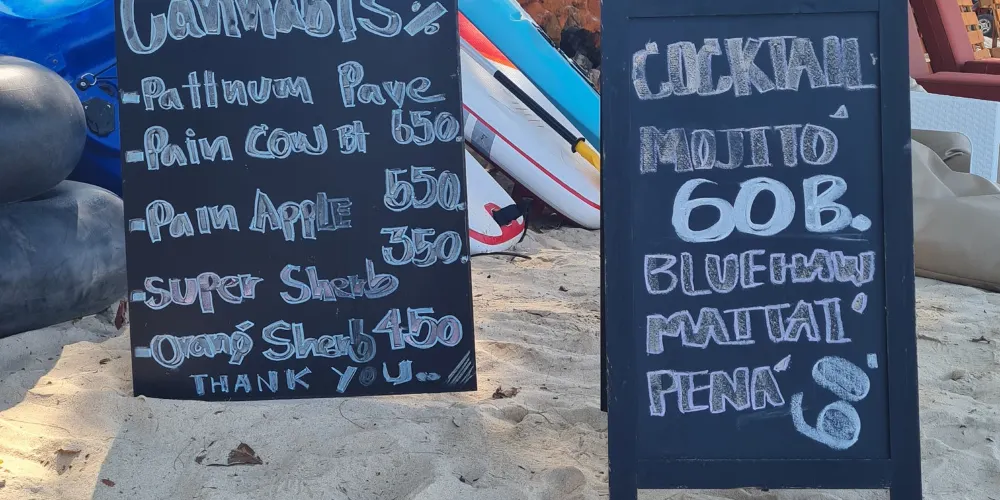 Cannabis %
- Pattnum Pave
650.
- Pain Cow Bt
550.
- Pain Apple
350.
- Super Sherb
- Orang Sherb 450
THANK YOU..
COCKTAIL
MOJITO
60 B.
BLUEHAW
MAITAI
PENA
60